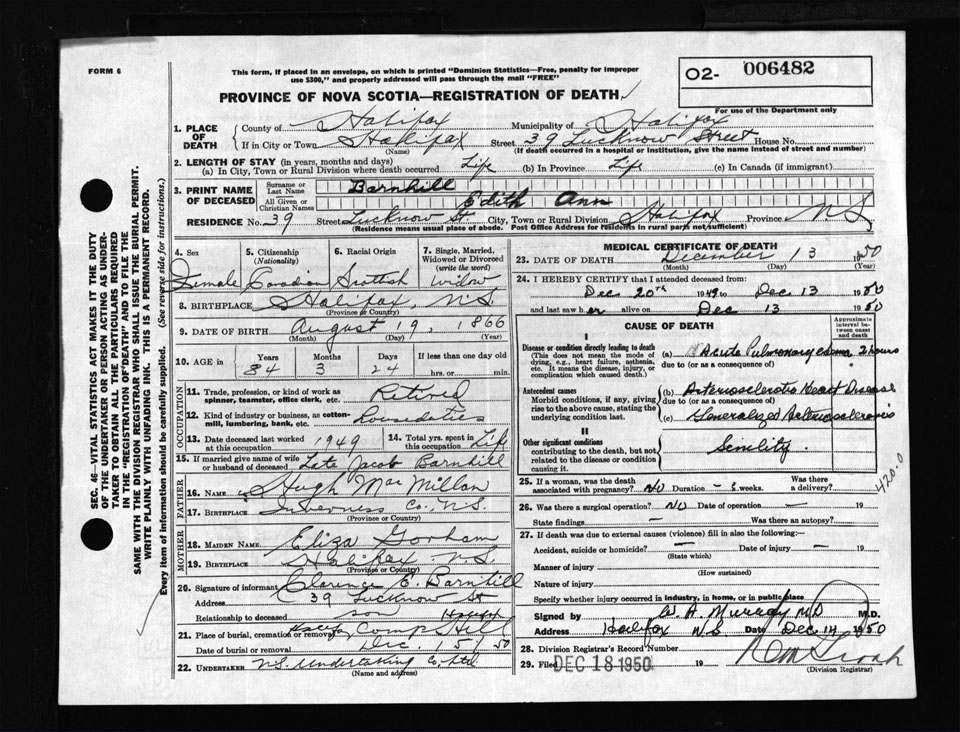 FORM 6
This form, if placed in an envelope, on which is printed "Dominion Statistics—Free, penalty for improper
use $300," and properly addressed will pass through the mail "FREE"
PROVINCE OF NOVA SCOTIA—REGISTRATION OF DEATH
O2- 006482
For use of the Department only
1. PLACE OF DEATH
County of Halifax Municipality of Halifax
If in City or Town Halifax Street 39 Lucknow Street House No.
(Name) (If death occurred in a hospital or institution, give the name instead of street and number)
2. LENGTH OF STAY (in years, months and days)
(a) In City, Town or Rural Division where death occurred Life (b) In Province Life (c) In Canada (if immigrant)
3. PRINT NAME OF DECEASED
Surname or Last Name Barnhill
All Given or Christian Names Edith Ann
RESIDENCE No. 39 Street Lucknow St City, Town or Rural Division Halifax Province N S
(Residence means usual place of abode. Post Office Address for residents in rural parts not sufficient)
4. Sex 5. Citizenship (Nationality) 6. Racial Origin 7. Single, Married, Widowed or Divorced (write the word)
Female Canadian Scottish Widow
8. BIRTHPLACE Halifax, N.S.
(Province or Country)
9. DATE OF BIRTH August 19, 1866
(Month) (Day) (Year)
10. AGE in Years Months Days If less than one day old
84 3 24 hrs. or min.
OCCUPATION
11. Trade, profession, or kind of work as spinner, teamster, office clerk, etc. Retired
12. Kind of industry or business, as cotton-mill, lumbering, bank, etc. House duties
13. Date deceased last worked at this occupation 1949 14. Total yrs. spent in this occupation Life
15. If married give name of wife or husband of deceased Late Jacob Barnhill
FATHER
16. NAME Hugh MacMillan
17. BIRTHPLACE Inverness Co., N.S.
(Province or Country)
MOTHER
18. MAIDEN NAME Eliza Gorham
19. BIRTHPLACE Halifax N.S.
(Province or Country)
20. Signature of informant Clarence E. Barnhill
Address 39 Lucknow St
Relationship to deceased son Halifax
21. Place of burial, cremation or removal Halifax Camp Hill
Date of burial or removal Dec. 15 50
22. UNDERTAKER N.S. Undertaking Co. Ltd
(Name and address)
MEDICAL CERTIFICATE OF DEATH
23. DATE OF DEATH December 13 1950
(Month) (Day) (Year)
24. I HEREBY CERTIFY that I attended deceased from:
Dec 20th 1949 to Dec 13 1950
and last saw her alive on Dec 13 1950
CAUSE OF DEATH
Approximate interval between onset and death
I
Disease or condition directly leading to death
(This does not mean the mode of dying, e.g., heart failure, asthenia, etc. It means the disease, injury, or complication which caused death.)
(a) Acute Pulmonary edema 2 hours
due to (or as a consequence of)
Antecedent causes
Morbid conditions, if any, giving rise to the above cause, stating the underlying condition last.
(b) Arteriosclerotic Heart Disease
due to (or as a consequence of)
(c) Generalized Arteriosclerosis
II
Other significant conditions
contributing to the death, but not related to the disease or condition causing it.
Senility
420.0
25. If a woman, was the death associated with pregnancy? NO Duration - weeks. Was there a delivery?
26. Was there a surgical operation? NO Date of operation — 19
State findings — Was there an autopsy?
27. If death was due to external causes (violence) fill in also the following:
Accident, suicide or homicide? — Date of injury — 19
(State which)
Manner of injury
(How sustained)
Nature of injury
Specify whether injury occurred in industry, in home, or in public place
Signed by W. A. Murray M.D. M.D.
Address Halifax N S Date Dec 14 1950
28. Division Registrar's Record Number
29. Filed DEC 18 1950 19
(Division Registrar)
SEC. 46—VITAL STATISTICS ACT MAKES IT THE DUTY
OF THE UNDERTAKER OR PERSON ACTING AS UNDER-
TAKER TO OBTAIN ALL THE PARTICULARS REQUIRED
IN THE "REGISTRATION OF DEATH" AND TO FILE THE
SAME WITH THE DIVISION REGISTRAR WHO SHALL ISSUE THE BURIAL PERMIT.
WRITE PLAINLY WITH UNFADING INK. THIS IS A PERMANENT RECORD.
Every item of information should be carefully supplied. (See reverse side for instructions.)